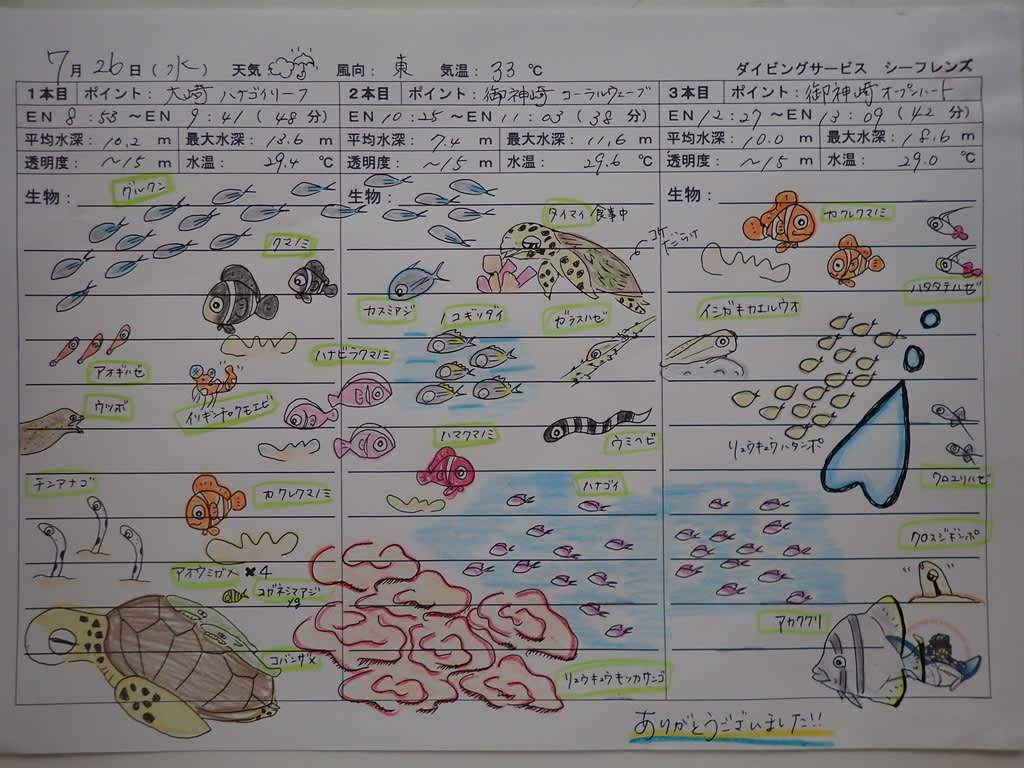 7月26日(水) 天気 風向: 東 気温: 33 ℃ ダイビングサービス シーフレンズ
1本目 ポイント: 大崎 ハナゴイリーフ
EN 8:53 ～EN 9:41 (48分)
平均水深: 10.2 m 最大水深: 13.6 m
透明度: ～15 m 水温: 29.4 ℃
生物:
グルクン
クマノミ
アオギハゼ
ハナビラクマノミ
イソギンチャクモエビ
ウツボ
チンアナゴ
カクレクマノミ
アオウミガメ ×4
コガネシマアジ
yg
コバンザメ
2本目 ポイント: 御神崎 コーラルウェーブ
EN 10:25 ～EN 11:03 (38分)
平均水深: 7.4 m 最大水深: 11.6 m
透明度: ～15 m 水温: 29.6 ℃
生物:
タイマイ 食事中
コケ
だらけ
カスミアジ
ノコギリダイ
ガラスハゼ
ハマクマノミ
ウミヘビ
ハナゴイ
リュウキュウキッカサンゴ
3本目 ポイント: 御神崎 オープンハート
EN 12:27 ～EN 13:09 (42分)
平均水深: 10.0 m 最大水深: 18.6 m
透明度: ～15 m 水温: 29.0 ℃
生物:
カクレクマノミ
ハタタテハゼ
イシガキカエルウオ
リュウキュウハタンポ
クロユリハゼ
クロスジギンポ
アカククリ
ありがとうございました!!